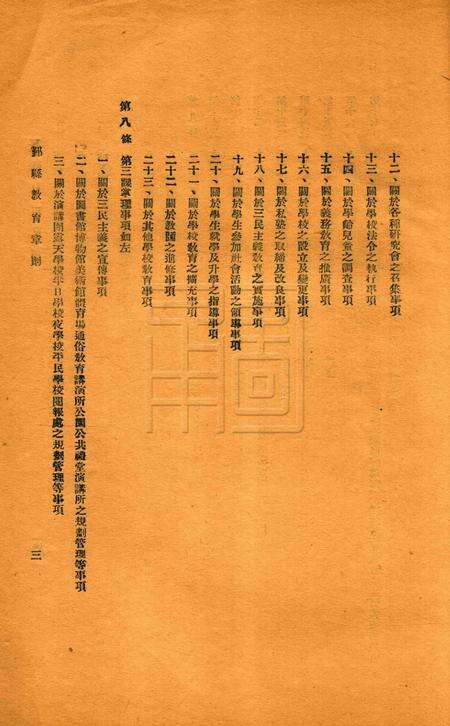 十二、關於各種研究會之召集事項
十三、關於學校法令之執行事項
十四、關於學齡兒童之調查事項
十五、關於義務教育之推廣事項
十六、關於學校之設立及變更事項
十七、關於私塾之取締及改良事項
十八、關於三民主義教育之實施事項
十九、關於學生參加社會活動之領導事項
二十、關於學生就學及升學之指導事項
二十一、關於學校教育之擴充事項
二十二、關於教師之進修事項
二十三、關於其他學校教育事項
第八條 第三課掌理事項如左
一、關於三民主義之宣傳事項
二、關於圖書館博物館美術館體育場通俗教育講演所公園公共禮堂演講所之規劃管理等事項
三、關於演講團露天學校半日學校夜學校平民學校閱報處之規劃管理等事項
縣教育章則
三